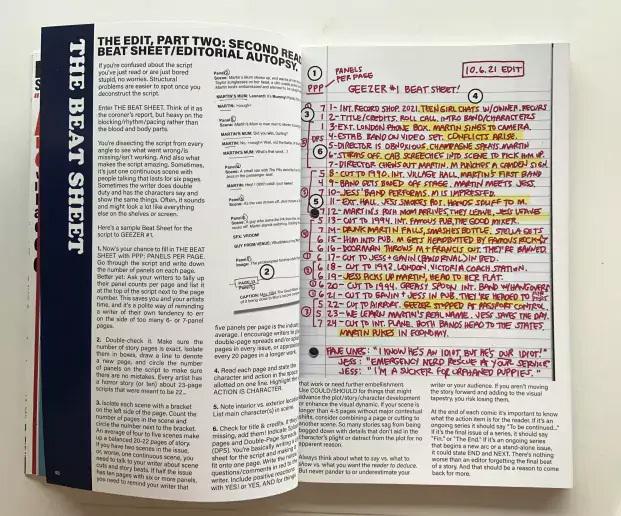 THE BEAT SHEET
THE EDIT, PART TWO: SECOND READ
BEAT SHEET/EDITORIAL AUTOPSY.
If you're confused about the script
you've just read or are just bored
stupid, no worries. Structural
problems are easier to spot once you
deconstruct the script.
Enter THE BEAT SHEET. Think of it as
the coroner's report, but heavy on the
blocking/rhythm/pacing rather than
the blood and body parts.
You're dissecting the script from every
angle to see what went wrong/is
missing/isn't working. And also what
makes the script amazing. Sometimes,
it's just one continuous scene with
people talking that lasts for six pages.
Sometimes the writer does double
duty and has the characters say and
show the same things. Often, it sounds
and might look a lot like everything
else on the shelves or screen.
Here's a sample Beat Sheet for the
script to GEEZER #1.
1. Now's your chance to fill in THE BEAT
SHEET with PPP; PANELS PER PAGE.
Go through the script and write down
the number of panels on each page.
Better yet: Ask your writers to tally up
their panel counts per page and list it
at the top of the script next to the page
number. This saves you and your artists
time, and it's a polite way of reminding
a writer of their own tendency to err
on the side of too many 6- or 7-panel
pages.
2. Double-check it. Make sure the
number of story pages is exact. Isolate
them in boxes, draw a line to denote
a new page, and circle the number
of panels on the script to make sure
there are no mistakes. Every artist has
a horror story (or ten) about 23-page
scripts that were meant to be 22...
3. Isolate each scene with a bracket
on the left side of the page. Count the
number of pages in the scene and
circle the number next to the bracket.
An average of four to five scenes make
up a balanced 20-22 pages of story.
If you have two scenes in the issue,
or, worse, one continuous scene, you
need to talk to your writer about scene
cuts and story beats. If half the issue
has ten pages with six or more panels,
you need to remind your writer that
five panels per page is the industry
average. I encourage writers to
double-page spreads and/or
pages in every issue, or
every 20 pages in a longer work.
4. Read each page and state the
character and action in the
allotted on one line. Highlight the
ACTION in
5. Note interior vs. exterior
List main character(s) in scene.
6. Check for title & credits. If they're
missing, add them! Indicate
pages and Double-Page
(DPS). You're basically writing a
sheet for the script and making it
fit onto one page. Write the
questions/comments in red to the
writer. Include positive reactions
with YES! or YES, AND for things
1
PANELS
PER PAGE
10.6.21 EDIT
PPP
GEEZER #1 BEAT SHEET!
7 1- INT. RECORD SHOP. 2021. TEEN GIRL CHATS W/OWNER. RECURS
2-TITLE/CREDITS. ROLL CALL. INTRO BAND/CHARACTERS
3-EXT. LONDON PHONE BOX. MARTIN SINGS TO CAMERA.
4-ESTAB. RANDOM VIDEO SET. CONFLICTS ARISE.
5-DIRECTOR IS OBNOXIOUS, CHAMPAGNE SPRAYS MARTIN
6-STORMS OFF. CAB SCREECHES INTO SCENE TO PICK HIM UP.
8-CUT TO 1990. INT. VILLAGE HALL. MARTIN'S FIRST BAND
9-BAND GETS BOOED OFF STAGE. MARTIN MEETS JESS.
10-JESS' BAND PERFORMS. M IS IMPRESSED.
11-EXT. HALL. JESS SMOKES POT. HANDS STUFF TO M.
12-MARTIN'S RICH MOM ARRIVES, THEY LEAVE, JESS LEAVES
13-CUT TO 1994. INT. FAMOUS PUB, THE GOOD MIXER.
14-DRUNK MARTIN FALLS, SMASHES BOTTLE. STELLA GETS
15-HIM INTO PUB. M GETS HEADBUTTED BY FAMOUS
16-DOORMAN THROWS M + FRANCIS OUT. THEY'RE BANNED
17-CUT TO JESS + GAVIN (BAND RIVAL) IN BED.
18-CUT TO 1992. LONDON, VICTORIA COACH STATION.
19-JESS PICKS UP MARTIN, HEAD TO HER FLAT.
20-CUT TO 1994. GREASY SPOON INT. BAND W/HANGOVERS
21-CUT TO GAVIN + JESS IN PUB. THEY'RE HEADED TO
22-CUT TO AIRPORT. GEEZER STOPPED AT PASSPORT CONTROL
23-WE LEARN MARTIN'S REAL NAME. JESS SAVES THE DAY.
24-CUT TO INT. PLANE. BOTH BANDS HEAD TO THE STATES.
MARTIN PUKES IN ECONOMY.
FAVE LINES: "I KNOW HE'S AN IDIOT, BUT HE'S OUR IDIOT!"
JESS: "EMERGENCY NERD RESCUE AT YOUR SERVICE"
JESS: "I'M A SUCKER FOR ORPHANED PUPPIES."
that work or need further embellishment.
Use COULD/SHOULD for things that might
advance the plot/story/character development
or enhance the visual dynamic. If your scene is
longer than 4-5 pages without major contextual
shifts, consider combining a page or cutting to
another scene. So many stories sag from being
bogged down with details that don't aid in the
character's plight or detract from the plot for no
apparent reason.
Always think about what to say vs. what to
show vs. what you want the reader to deduce.
But never pander to or underestimate your
writer or your audience. If you aren't moving
the story forward and adding to the visual
tapestry, you risk losing them.
At the end of each comic it's important to know
what the action item is for the reader. If it's an
ongoing series it should say "To be continued..."
If it's the final issue of a series, it should say
"Fin." or "The End." If it's an ongoing series
that begins a new arc or a stand-alone issue,
it could state END and NEXT. There's nothing
worse than an editor forgetting the final beat
of a story. And that should be a reason to come
back for more.